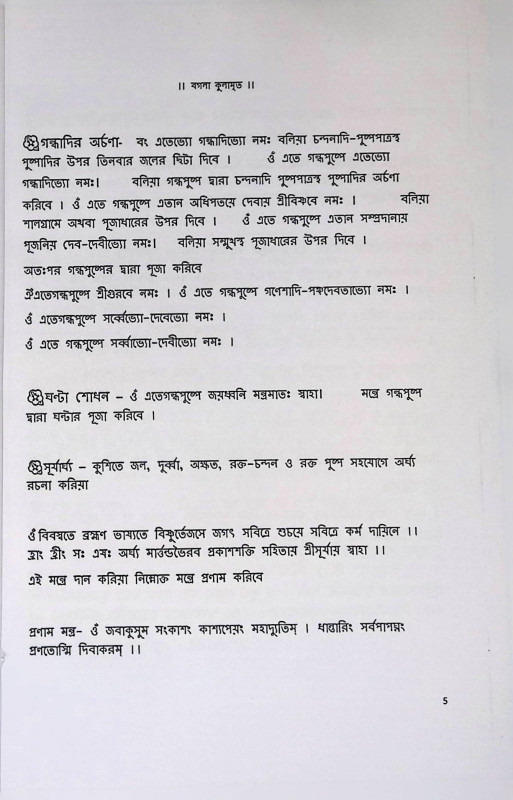 ।। বগলা কুলামৃত ।।
গন্ধাদির অর্চণা- বং এতেভ্যো গন্ধাদিভ্যো নমঃ বলিয়া চন্দনাদি-পুষ্পপাত্রস্থ
পুষ্পাদির উপর তিনবার জলের ছিটা দিবে । ওঁ এতে গন্ধপুষ্পে এতেভ্যো
গন্ধাদিভ্যো নমঃ। বলিয়া গন্ধপুষ্প দ্বারা চন্দনাদি পুষ্পপাত্রস্থ পুষ্পাদির অর্চণা
করিবে । ওঁ এতে গন্ধপুষ্পে এতান অধিপতয়ে দেবায় শ্রীবিষ্ণবে নমঃ । বলিয়া
শালগ্রামে অথবা পূজাধারের উপর দিবে । ওঁ এতে গন্ধপুষ্পে এতান সম্প্রদানায়
পূজনিয় দেব-দেবীভ্যো নমঃ। বলিয়া সন্মুখস্থ পূজাধারের উপর দিবে ।
অতঃপর গন্ধপুষ্পের দ্বারা পূজা করিবে
ঐঁএতেগন্ধপুষ্পে শ্রীগুরবে নমঃ । ওঁ এতে গন্ধপুষ্পে গণেশাদি-পঞ্চদেবতাভ্যো নমঃ ।
ওঁ এতেগন্ধপুষ্পে সর্ব্বেভ্যো-দেবেভ্যো নমঃ ।
ওঁ এতে গন্ধপুষ্পে সর্ব্বাভ্যো-দেবীভ্যো নমঃ ।
ঘন্টা শোধন – ওঁ এতেগন্ধপুষ্পে জয়ধ্বনি মন্ত্রমাতঃ স্বাহা। মন্ত্রে গন্ধপুষ্প
দ্বারা ঘন্টার পূজা করিবে ।
সূর্যার্ঘ্য – কুশিতে জল, দূর্ব্বা, অক্ষত, রক্ত-চন্দন ও রক্ত পুষ্প সহযোগে অর্ঘ্য
রচনা করিয়া
ওঁ বিবস্বতে ব্রহ্মণ ভাষ্যতে বিষ্ণুর্তেজসে জগৎ সবিত্রে শুচয়ে সবিত্রে কর্ম দায়িনে ।।
হ্রাং হ্রীং সঃ এষঃ অর্ঘ্য মার্তন্ডভৈরব প্রকাশশক্তি সহিতায় শ্রীসূর্যায় স্বাহা ।।
এই মন্ত্রে দান করিয়া নিম্নোক্ত মন্ত্রে প্রণাম করিবে
প্রণাম মন্ত্র- ওঁ জবাকুসুম সংকাশং কাশ্যপেয়ং মহাদ্যুতিম্ । ধান্তারিং সর্বপাপঘ্নং
প্রণতোস্মি দিবাকরম্ ।।
5